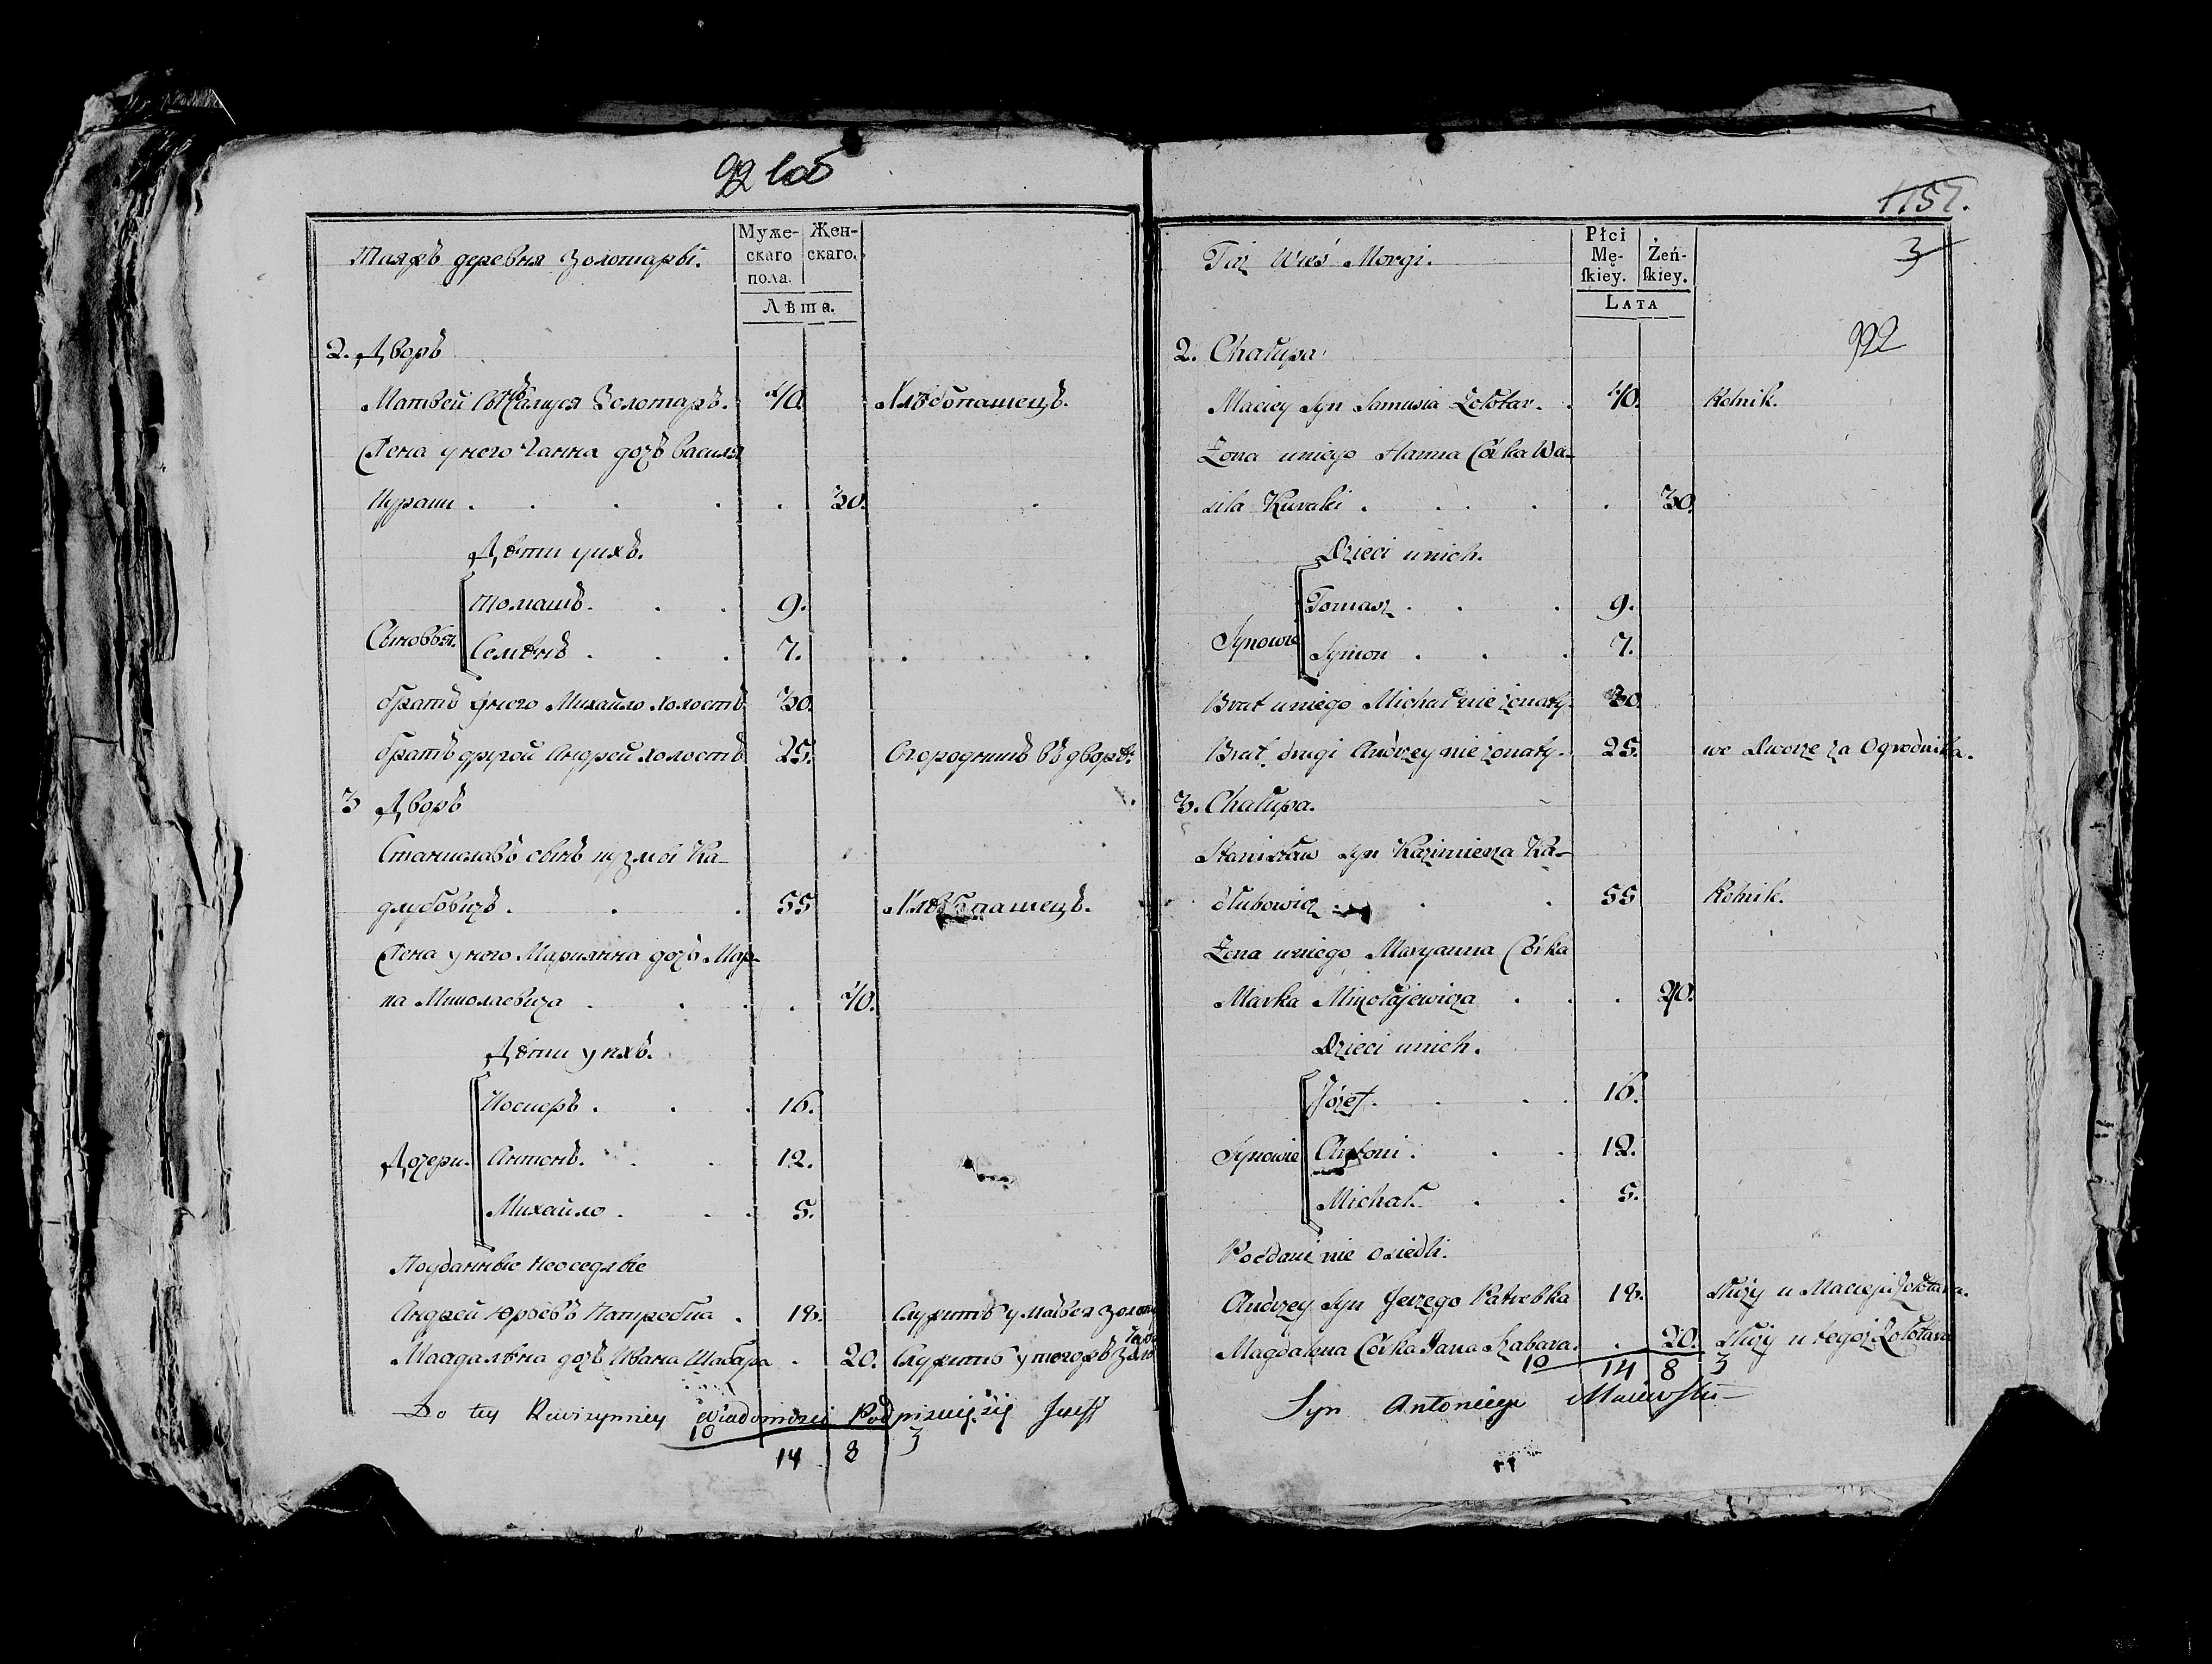 922 об
Таяжъ деревня Золотары.
Муже-
скаго
пола.
Жен-
скаго.
Лѣта.
2. Дворъ
Матвей сынъ Самуся Золотаръ. 40. Хлѣбопашецъ.
Жена у него Ганна дочь Василя
Курали . . . . . 30.
Дѣти у ихъ.
Томашъ. . . 9.
Сыновья.
Семѣнъ . . . 7.
братъ у него Михайло холостъ 30.
братъ другой Андрей холостъ 25. Огородникъ въ дворѣ.
3 Дворъ
Станиславъ сынъ Кузмы Ка-
длубовичъ . . . 55 Хлѣбопашецъ.
Жена у него Марианна дочь Мар-
ка Миколаевича . . . . 40.
Дѣти у ихъ.
Иосиеръ . . . 16.
Дочери. Антонъ. . . 12.
Михайло . . . 5.
Подданные неоседлые
Андрей Юрьевъ Патребка . 18. Служитъ у Матвея Золо
тара
Магдалѣна дочь Ивана Шабара . 20. Служитъ у тогожъ Золо
Do tey Rewizyiney Wiadomosci Podpisuję się Jozeff
10 14 8 3
1157.
Taż Wieś Morgi.
Płci
Mę-
ſkiey.
Żeń-
ſkiey.
LATA
3
922
2. Chałupa
Maciey Syn Samusia Zołotar. . 40. Rolnik.
Żona u niego Hanna Córka Wa-
sila Kurali . . . . . 30.
Dzieci u nich.
Tomasz . . . 9.
Synowie
Symon . . . 7.
Brat u niego Michał nie żonaty. 30
Brat drugi Andrzey nie żonaty. 25. we Dworze za Ogrodnika.
3. Chałupa.
Stanisław syn Kazimierza Ka-
dłubowicz . . . 55 Rolnik.
Żona u niego Maryanna Córka
Marka Mikołajewicza . . . 40.
Dzieci u nich.
Józef. . . . 16.
Synowie Antoni . . . 12.
Michał. . . 5.
Poddani nie osiedli.
Andrzey Syn Jerzego Patrebka 18. służy u Macieja Zołotara.
Magdalena Córka Jana Szabara. . 20. służy u tegoż Zołotara
10 14 8 3
Syn Antoniego Maiewski